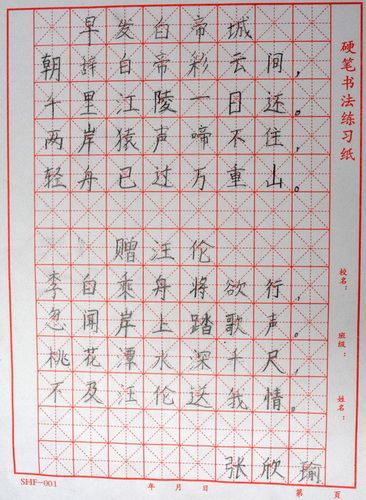 早发白帝城
朝辞白帝彩云间，
千里江陵一日还。
两岸猿声啼不住，
轻舟已过万重山。
赠汪伦
李白乘舟将欲行，
忽闻岸上踏歌声。
桃花潭水深千尺，
不及汪伦送我情。
张欣瑜
硬笔书法练习纸
校名：
班级：
姓名：
SHF-001
年 月 日
第 页